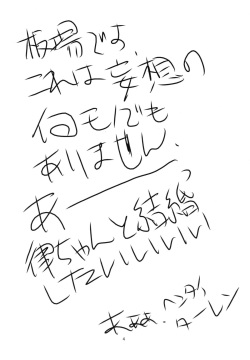 板場です、
これは妄想の
何モノでも
ありません、
あーーーーっ
律ちゃんと結婚
したいいいいい
ヘンタイ
ターレン